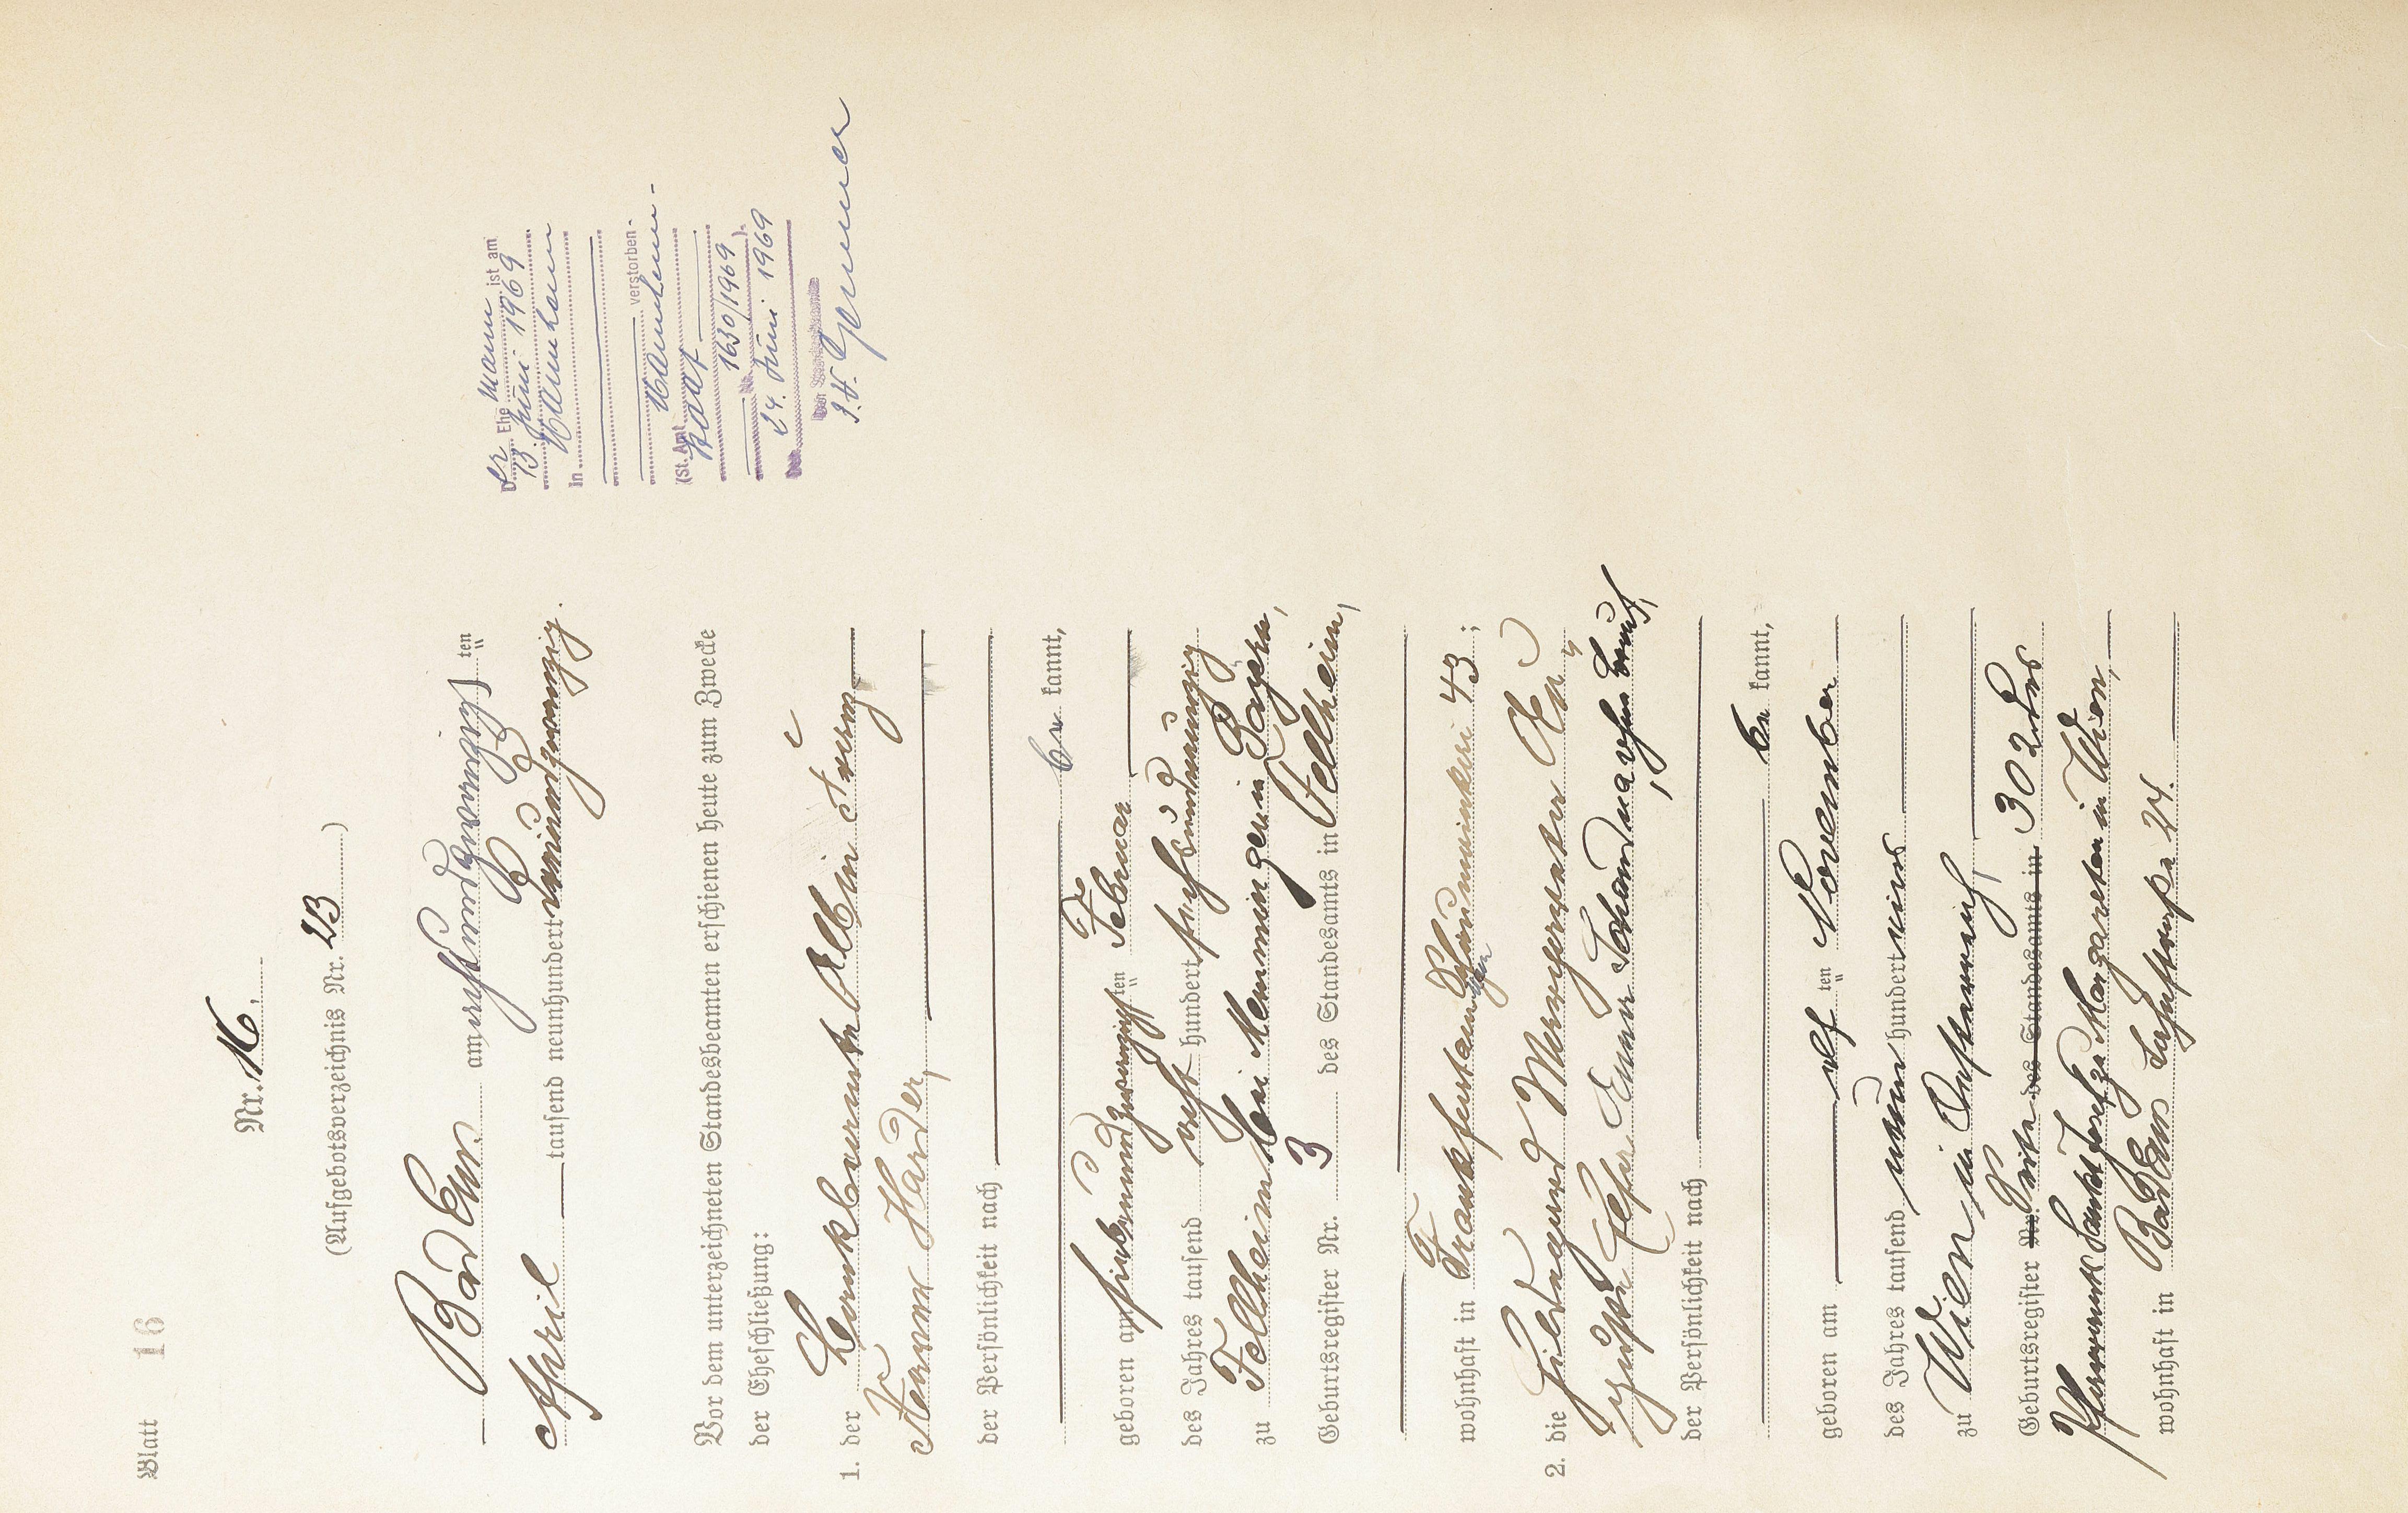 Blatt 16
Nr. 16.
(Aufgebotsverzeichnis Nr. 23)
Bad Ems am achtundzwanzigsten
April tausend neunhundert neunundzwanzig.
Vor dem unterzeichneten Standesbeamten erschienen heute zum Zwecke
der Eheschließung:
1. der Bankbeamte Albin Franz
Werner Harder,
der Persönlichkeit nach
kannt,
geboren am siebenundzwanzigsten Februar
des Jahres tausend acht hundert sechsundneunzig
zu Fellheim bei Memmingen in Bayern,
Geburtsregister Nr. 3 des Standesamts in Fellheim,
wohnhaft in Frankfurt am 43;
2. die Hildegard Margarete
Josefa Emma ohne Beruf,
der Persönlichkeit nach
kannt,
geboren am elften November
des Jahres tausend neun hundert eins
zu Wien in Österreich,
Geburtsregister Nr. Seite des Standesamts in 302 des
Pfarramts Sankt Josef zu Margareten in Wien,
wohnhaft in Bad Ems 24.
Der Ehemann ist am
13. Juni 1969
In Mannheim
verstorben-
(St. Amt Mannheim-
Stadt
Nr. 1630/1969).
Den 24. Juni 1969
Der Standesbeamte
I.V.